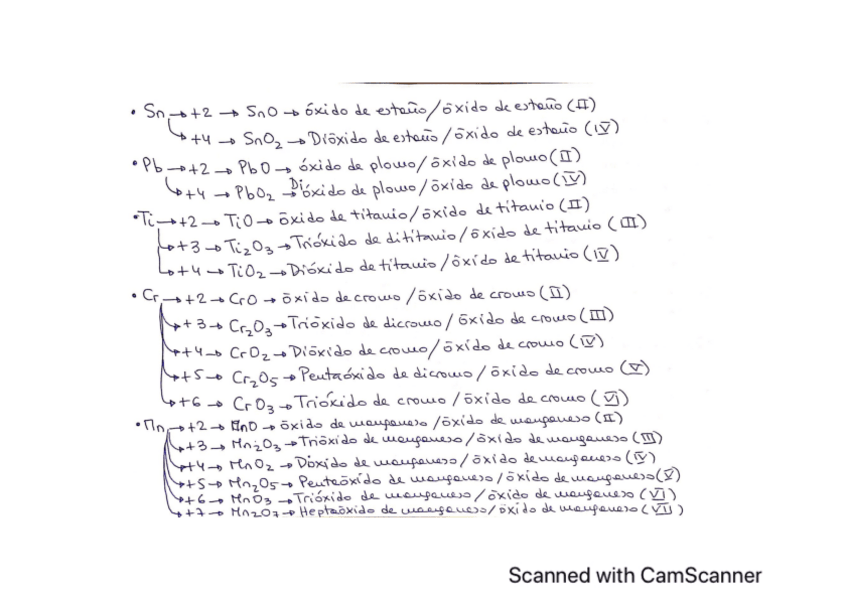 • Sn → +2 → SnO → óxido de estaño/óxido de estaño (II)
→ +4 → SnO₂ → Dióxido de estaño/óxido de estaño (IV)
• Pb → +2 → PbO → óxido de plomo/óxido de plomo (II)
→ +4 → PbO₂ → Dióxido de plomo/óxido de plomo (IV)
• Ti → +2 → TiO → óxido de titanio/óxido de titanio (II)
→ +3 → Ti₂O₃ → Trióxido de dititanio/óxido de titanio (III)
→ +4 → TiO₂ → Dióxido de titanio/óxido de titanio (IV)
• Cr → +2 → CrO → óxido de cromo/óxido de cromo (II)
→ +3 → Cr₂O₃ → Trióxido de dicromo/óxido de cromo (III)
→ +4 → CrO₂ → Dióxido de cromo/óxido de cromo (IV)
→ +5 → Cr₂O₅ → Pentaóxido de dicromo/óxido de cromo (V)
→ +6 → CrO₃ → Trióxido de cromo/óxido de cromo (VI)
• Mn → +2 → MnO → óxido de manganeso/óxido de manganeso (II)
→ +3 → Mn₂O₃ → Trióxido de manganeso/óxido de manganeso (III)
→ +4 → MnO₂ → Dóxido de manganeso/óxido de manganeso (IV)
→ +5 → Mn₂O₅ → Pentaóxido de manganeso/óxido de manganeso (V)
→ +6 → MnO₃ → Trióxido de manganeso/óxido de manganeso (VI)
→ +7 → Mn₂O₇ → Heptaóxido de manganeso/óxido de manganeso (VII)
Scanned with CamScanner